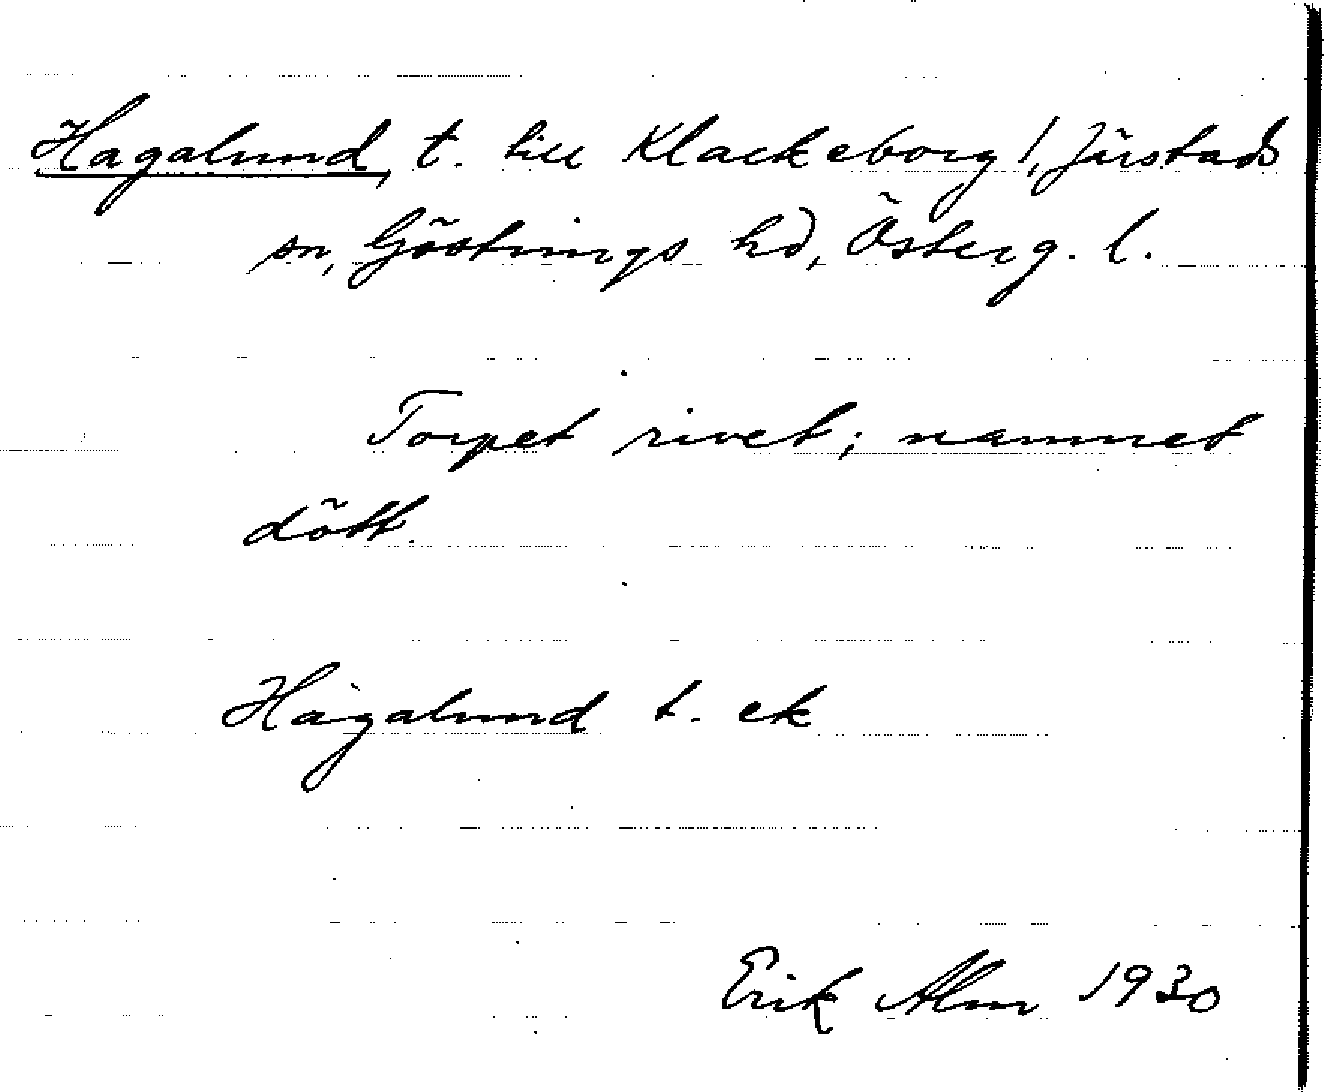 Hagalund, t. till Klackeborg 1, Järstads
sn, Göstrings hd, Österg. l.
Torpet rivet; namnet
dött.
Hagalund t. ek
Erik Alm 1930